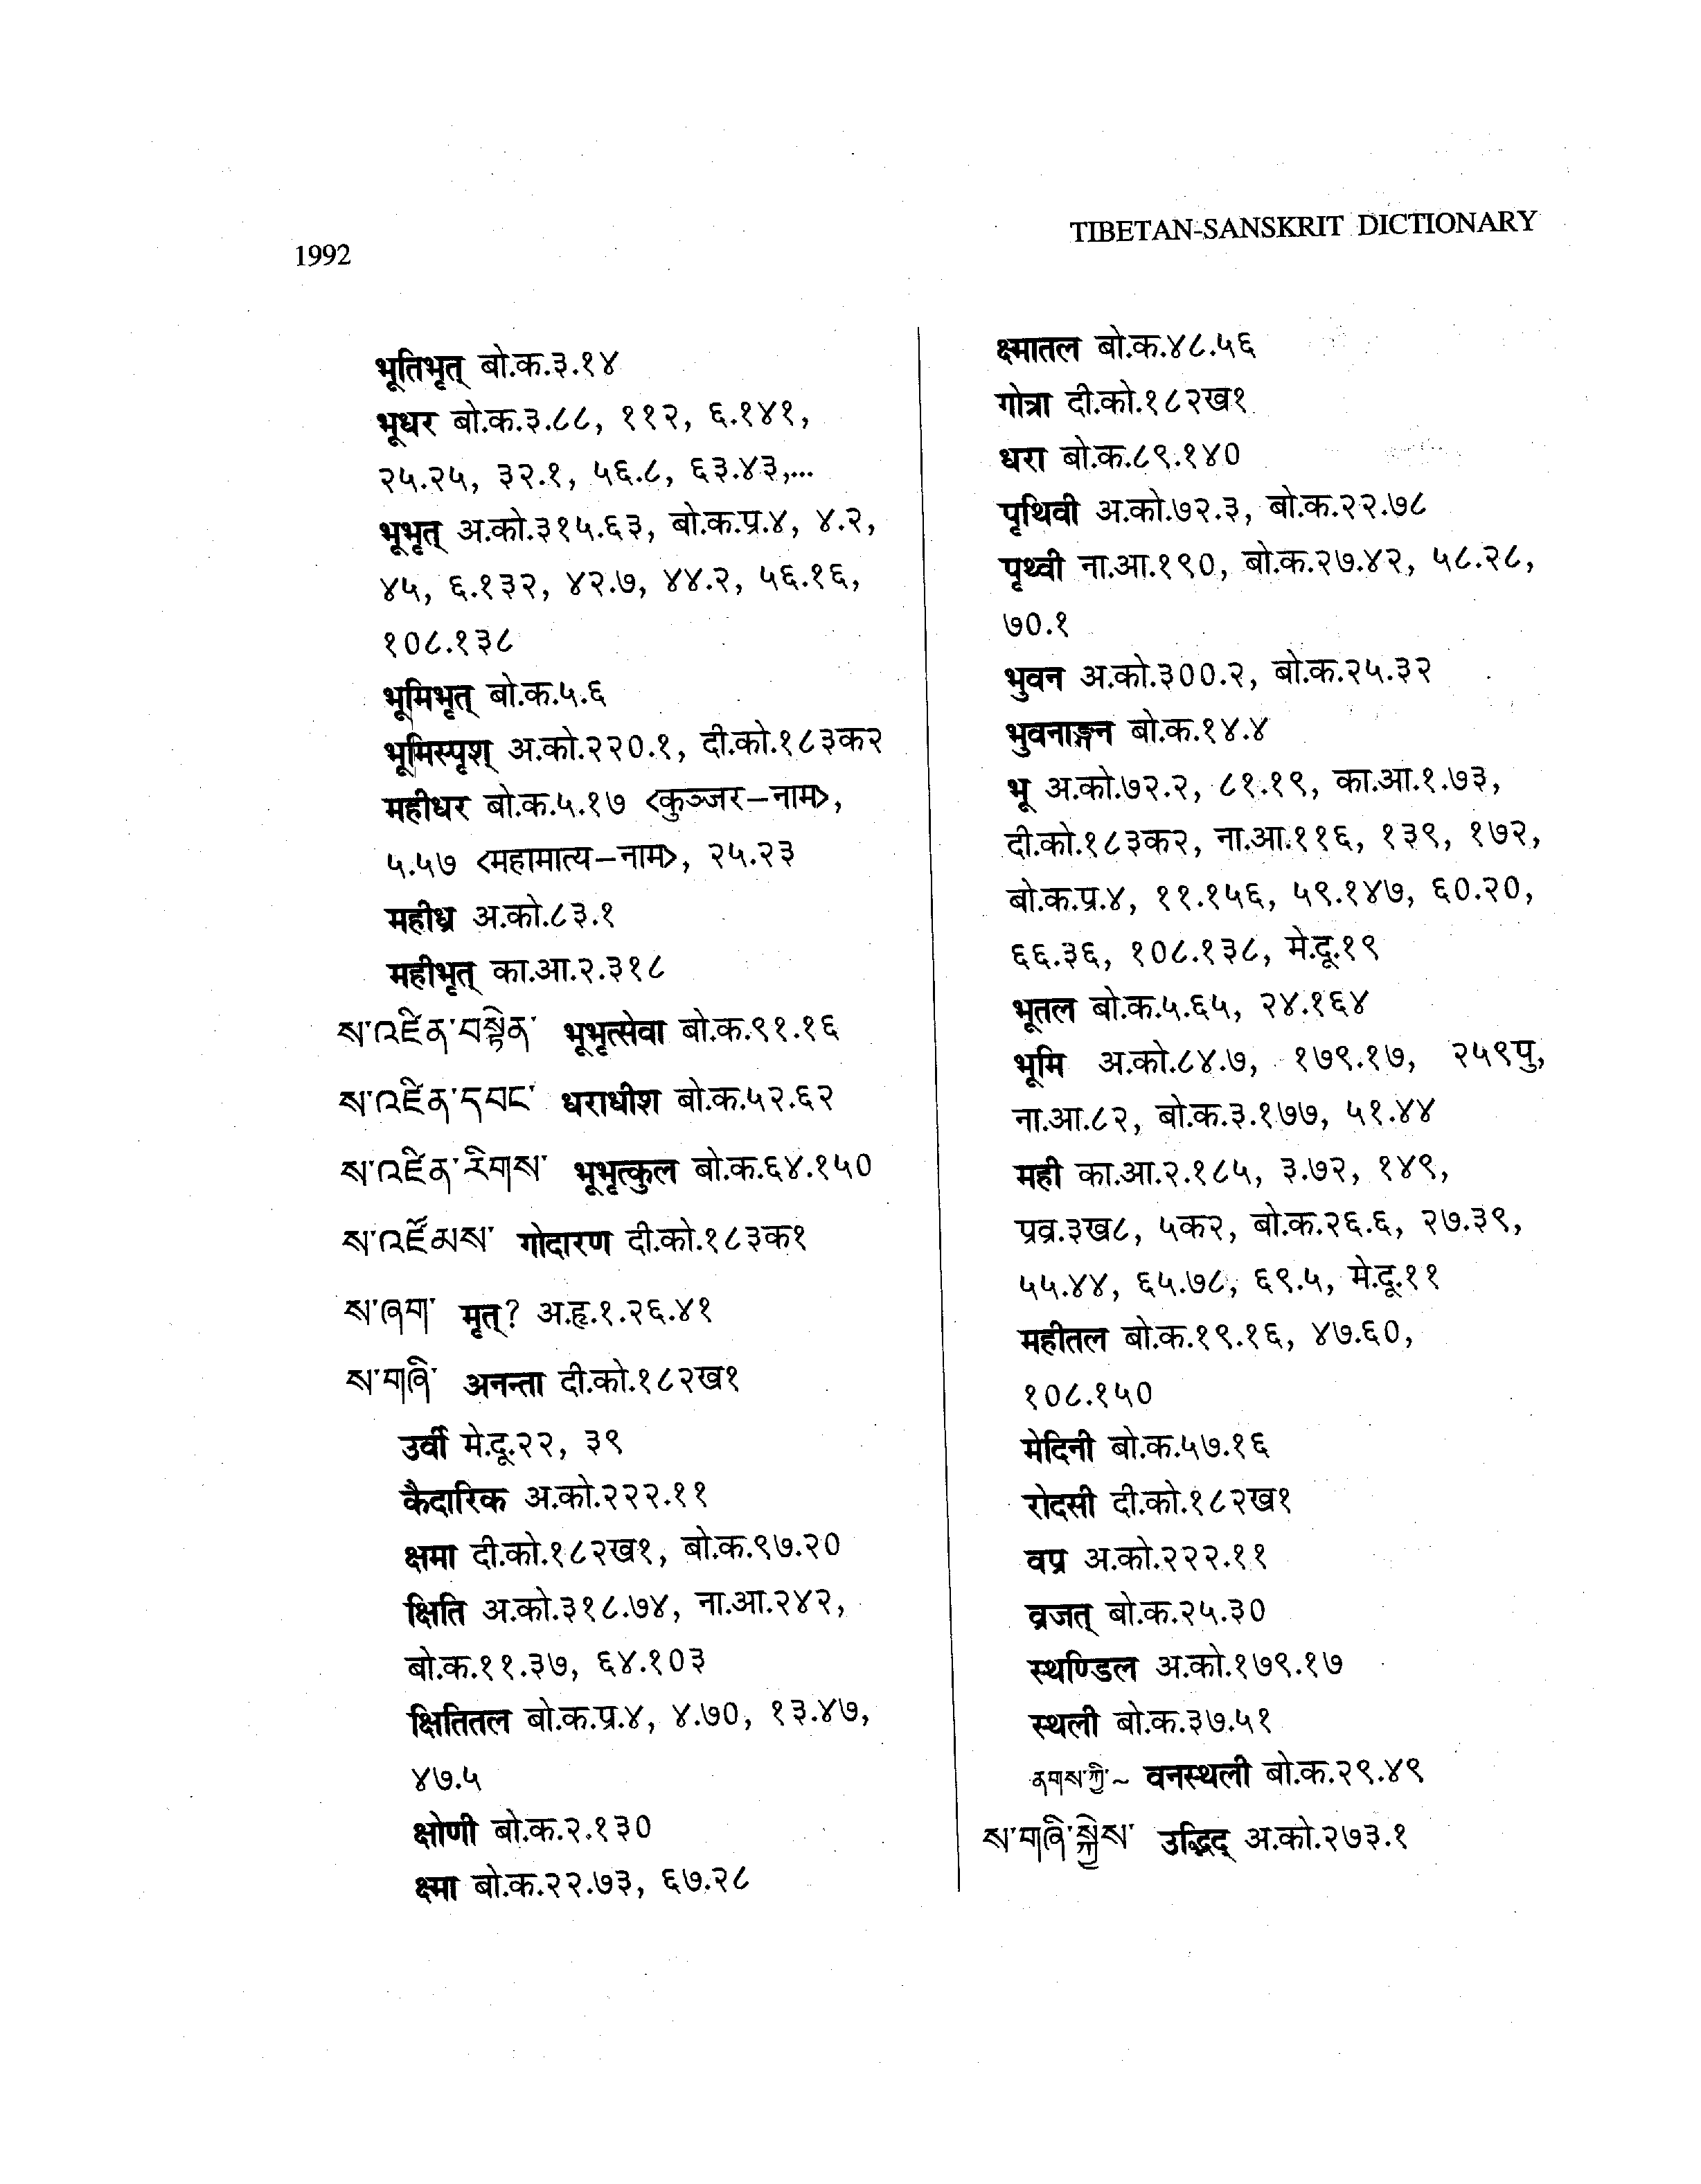 1992
TIBETAN-SANSKRIT DICTIONARY
भूतिभृत् बो.क.३.१४
भूधर बो.क.३.८८, ११२, ६.१४१,
२५.२५, ३२.१, ५६.८, ६३.४३,...
भूभृत् अ.को.३१५.६३, बो.क.प्र.४, ४.२,
४५, ६.१३२, ४२.७, ४४.२, ५६.१६,
१०८.१३८
भूमिभृत् बो.क.५.६
भूमिस्पृश् अ.को.२२०.१, दी.को.१८३क२
महीधर बो.क.५.१७ <कुञ्जर-नाम>,
५.५७ <महामात्य-नाम>, २५.२३
महीध्र अ.को.८३.१
महीभृत् का.आ.२.३१८
ས་འཛིན་བསྟེན་ भूभृत्सेवा बो.क.९१.१६
ས་འཛིན་དབང་ धराधीश बो.क.५२.६२
ས་འཛིན་རིགས་ भूभृत्कुल बो.क.६४.१५०
ས་འཛོམས་ गोदारण दी.को.१८३क१
ས་ཞག་ मृत्? अ.हृ.१.२६.४१
ས་གཞི་ अनन्ता दी.को.१८२ख१
उर्वी मे.दू.२२, ३९
कैदारिक अ.को.२२२.११
क्षमा दी.को.१८२ख१, बो.क.९७.२०
क्षिति अ.को.३१८.७४, ना.आ.२४२,
बो.क.११.३७, ६४.१०३
क्षितितल बो.क.प्र.४, ४.७०, १३.४७,
४७.५
क्षोणी बो.क.२.१३०
क्ष्मा बो.क.२२.७३, ६७.२८
क्ष्मातल बो.क.४८.५६
गोत्रा दी.को.१८२ख१
धरा बो.क.८९.१४०
पृथिवी अ.को.७२.३, बो.क.२२.७८
पृथ्वी ना.आ.१९०, बो.क.२७.४२, ५८.२८,
७०.१
भुवन अ.को.३००.२, बो.क.२५.३२
भुवनाङ्गन बो.क.१४.४
भू अ.को.७२.२, ८१.१९, का.आ.१.७३,
दी.को.१८३क२, ना.आ.११६, १३९, १७२,
बो.क.प्र.४, ११.१५६, ५९.१४७, ६०.२०,
६६.३६, १०८.१३८, मे.दू.१९
भूतल बो.क.५.६५, २४.१६४
भूमि अ.को.८४.७, १७९.१७, २५९पु,
ना.आ.८२, बो.क.३.१७७, ५१.४४
मही का.आ.२.१८५, ३.७२, १४९,
प्रव्र.३ख८, ५क२, बो.क.२६.६, २७.३९,
५५.४४, ६५.७८, ६९.५, मे.दू.११
महीतल बो.क.१९.१६, ४७.६०,
१०८.१५०
मेदिनी बो.क.५७.१६
रोदसी दी.को.१८२ख१
वप्र अ.को.२२२.११
व्रजत् बो.क.२५.३०
स्थण्डिल अ.को.१७९.१७
स्थली बो.क.३७.५१
ནགས་ཀྱི་~ वनस्थली बो.क.२९.४९
ས་གཞི་སྐྱེས་ उद्भिद् अ.को.२७३.१